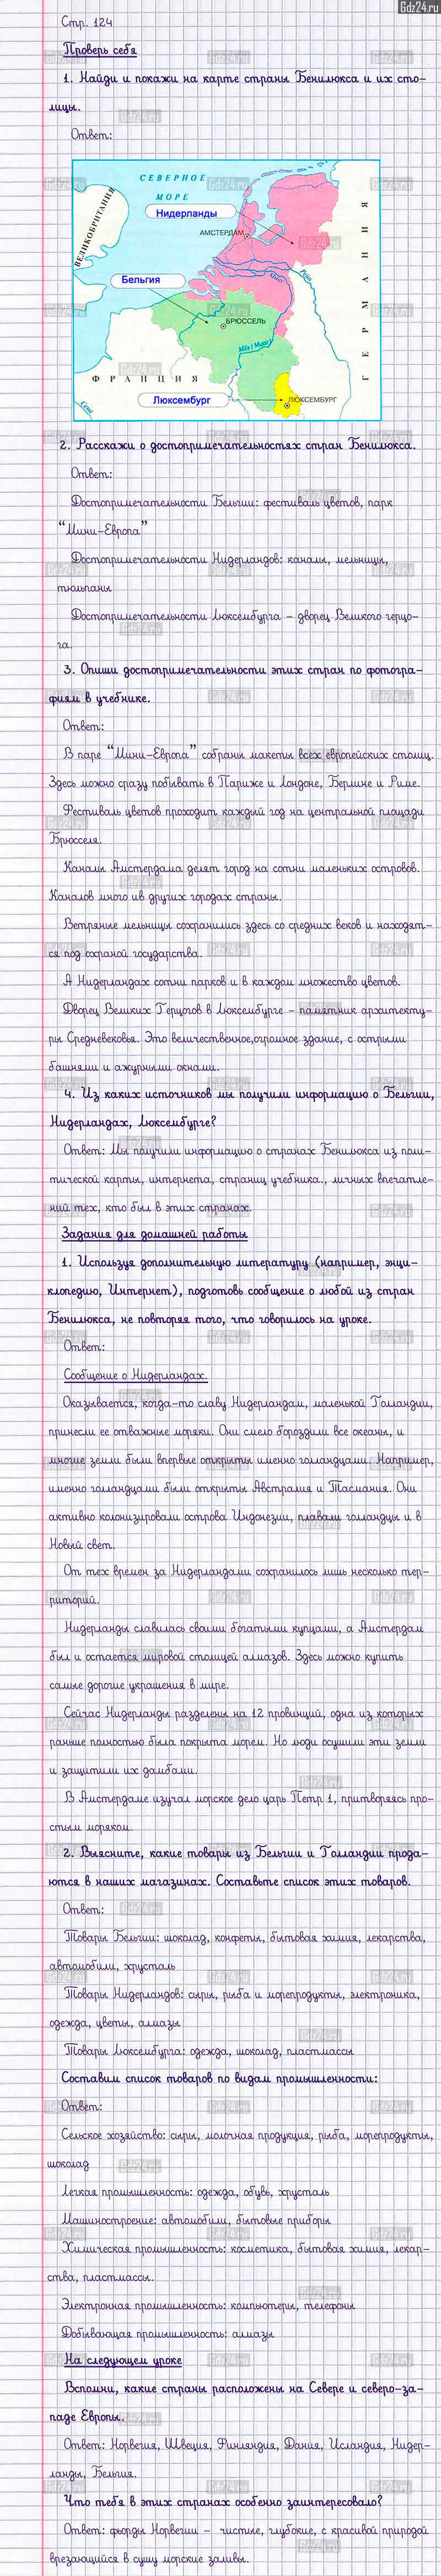 Gdz24.ru
Стр. 124
Проверь себя
1. Найди и покажи на карте страны Бенилюкса и их сто-
лицы.
Ответ:
СЕВЕРНОЕ
МОРЕ
ВЕЛИКОБРИТАНИЯ
Нидерланды
АМСТЕРДАМ
Рейн
Маас
ГЕРМАНИЯ
Бельгия
БРЮССЕЛЬ
Мёз (Маас)
ФРАНЦИЯ
Люксембург
ЛЮКСЕМБУРГ
Сена
2. Расскажи о достопримечательностях стран Бенилюкса.
Ответ:
Достопримечательности Бельгии: фестиваль цветов, парк
“Мини-Европа”
Достопримечательности Нидерландов: каналы, мельницы,
тюльпаны
Достопримечательности Люксембурга – дворец Великого герцо-
га.
3. Опиши достопримечательности этих стран по фотогра-
фиям в учебнике.
Ответ:
В парке “Мини-Европа” собраны макеты всех европейских столиц.
Здесь можно сразу побывать в Париже и Лондоне, Берлине и Риме.
Фестиваль цветов проходит каждый год на центральной площади
Брюсселя.
Каналы Амстердама делят город на сотни маленьких островов.
Каналов много ив других городах страны.
Ветряные мельницы сохранились здесь со средних веков и находят-
ся под охраной государства.
А Нидерландах сотни парков и в каждом множество цветов.
Дворец Великих Герцогов в Люксембурге – памятник архитекту-
ры Средневековья. Это величественное,огромное здание, с острыми
башнями и ажурными окнами.
4. Из каких источников мы получили информацию о Бельгии,
Нидерландах, Люксембурге?
Ответ: Мы получили информацию о странах Бенилюкса из поли-
тической карты, интернета, страниц учебника., личных впечатле-
ний тех, кто был в этих странах.
Задания для домашней работы
1. Используя дополнительную литературу (например, энци-
клопедию, Интернет), подготовь сообщение о любой из стран
Бенилюкса, не повторяя того, что говорилось на уроке.
Ответ:
Сообщение о Нидерландах.
Оказывается, когда-то славу Нидерландам, маленькой Голландии,
принесли ее отважные моряки. Они смело бороздили все океаны, и
многие земли были впервые открыты именно голландцами. Например,
именно голландцами были открыты Австралия и Тасмания. Они
активно колонизировали острова Индонезии, плавали голландцы и в
Новый свет.
От тех времен за Нидерландами сохранилось лишь несколько тер-
риторий.
Нидерланды славилась своими богатыми купцами, а Амстердам
был и остается мировой столицей алмазов. Здесь можно купить
самые дорогие украшения в мире.
Сейчас Нидерланды разделены на 12 провинций, одна из которых
раньше полностью была покрыта морем. Но люди осушили эти земли
и защитили их дамбами.
В Амстердаме изучал морское дело царь Петр 1, притворяясь про-
стым моряком.
2. Выясните, какие товары из Бельгии и Голландии прода-
ются в наших магазинах. Составьте список этих товаров.
Ответ:
Товары Бельгии: шоколад, конфеты, бытовая химия, лекарства,
автомобили, хрусталь
Товары Нидерландов: сыры, рыба и морепродукты, электроника,
одежда, цветы, алмазы
Товары Люксембурга: одежда, шоколад, пластмассы
Составим список товаров по видам промышленности:
Ответ:
Сельское хозяйство: сыры, молочная продукция, рыба, морепродукты,
шоколад
Легкая промышленность: одежда, обувь, хрусталь
Машиностроение: автомобили, бытовые приборы
Химическая промышленность: косметика, бытовая химия, лекар-
ства, пластмассы.
Электронная промышленность: компьютеры, телефоны
Добывающая промышленность: алмазы
На следующем уроке
Вспомни, какие страны расположены на Севере и северо-за-
паде Европы.
Ответ: Норвегия, Швеция, Финляндия, Дания, Исландия, Нидер-
ланды, Бельгия.
Что тебя в этих странах особенно заинтересовало?
Ответ: фьорды Норвегии – чистые, глубокие, с красивой природой
врезающийся в сушу морские заливы.